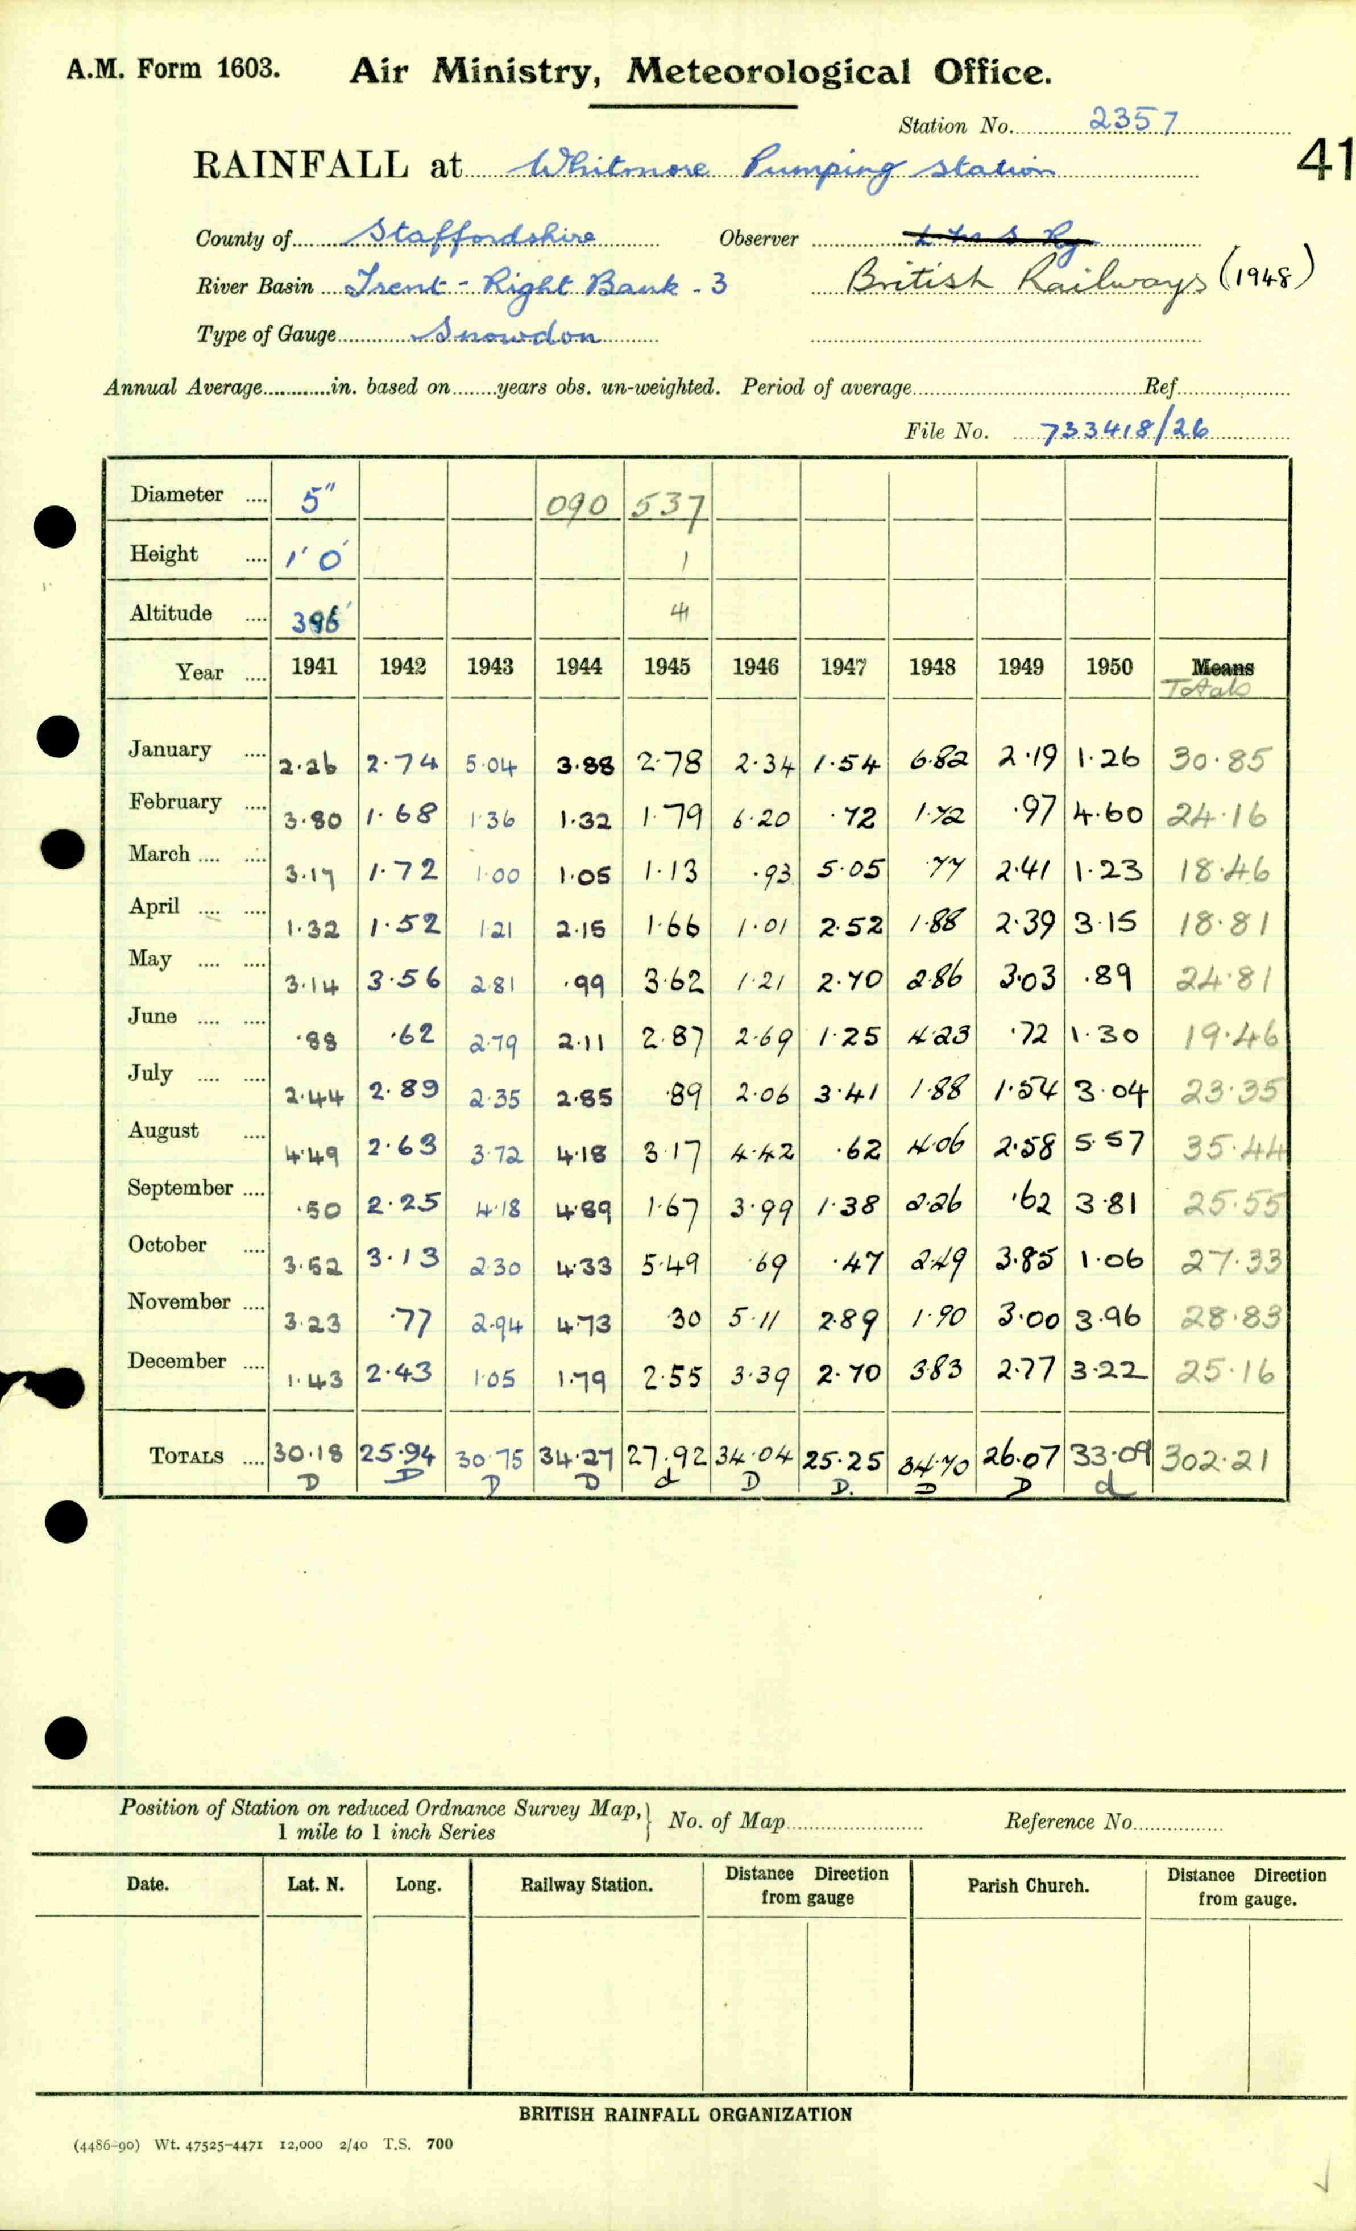 A.M. Form 1603. Air Ministry, Meteorological Office.
Station No. 2357
RAINFALL at Whitmore Pumping Station 41
County of Staffordshire Observer L M S Ry
River Basin Trent - Right Bank - 3 British Railways (1948)
Type of Gauge Snowdon
Annual Average in. based on years obs. un-weighted. Period of average Ref
File No. 733418/26
Diameter 5" 090 537
Height 1' 0" 1
Altitude 396' 4
Year 1941 1942 1943 1944 1945 1946 1947 1948 1949 1950 Means
Totals
January 2.26 2.74 5.04 3.88 2.78 2.34 1.54 6.82 2.19 1.26 30.85
February 3.80 1.68 1.36 1.32 1.79 6.20 .72 1.72 .97 4.60 24.16
March 3.17 1.72 1.00 1.05 1.13 .93 5.05 .77 2.41 1.23 18.46
April 1.32 1.52 1.21 2.15 1.66 1.01 2.52 1.88 2.39 3.15 18.81
May 3.14 3.56 2.81 .99 3.62 1.21 2.70 2.86 3.03 .89 24.81
June .88 .62 2.79 2.11 2.87 2.69 1.25 4.23 .72 1.30 19.46
July 2.44 2.89 2.35 2.85 .89 2.06 3.41 1.88 1.54 3.04 23.35
August 4.49 2.63 3.72 4.18 3.17 4.42 .62 4.06 2.58 5.57 35.44
September .50 2.25 4.18 4.89 1.67 3.99 1.38 2.26 .62 3.81 25.55
October 3.52 3.13 2.30 4.33 5.49 .69 .47 2.49 3.85 1.06 27.33
November 3.23 .77 2.94 4.73 .30 5.11 2.89 1.90 3.00 3.96 28.83
December 1.43 2.43 1.05 1.79 2.55 3.39 2.70 3.83 2.77 3.22 25.16
TOTALS 30.18 25.94 30.75 34.27 27.92 34.04 25.25 34.70 26.07 33.09 302.21
D D D D d D D. D D d
Position of Station on reduced Ordnance Survey Map, } No. of Map Reference No.
1 mile to 1 inch Series
Date. Lat. N. Long. Railway Station. Distance Direction from gauge Parish Church. Distance Direction from gauge.
BRITISH RAINFALL ORGANIZATION
(4486-90) Wt. 47525-4471 12,000 2/40 T.S. 700